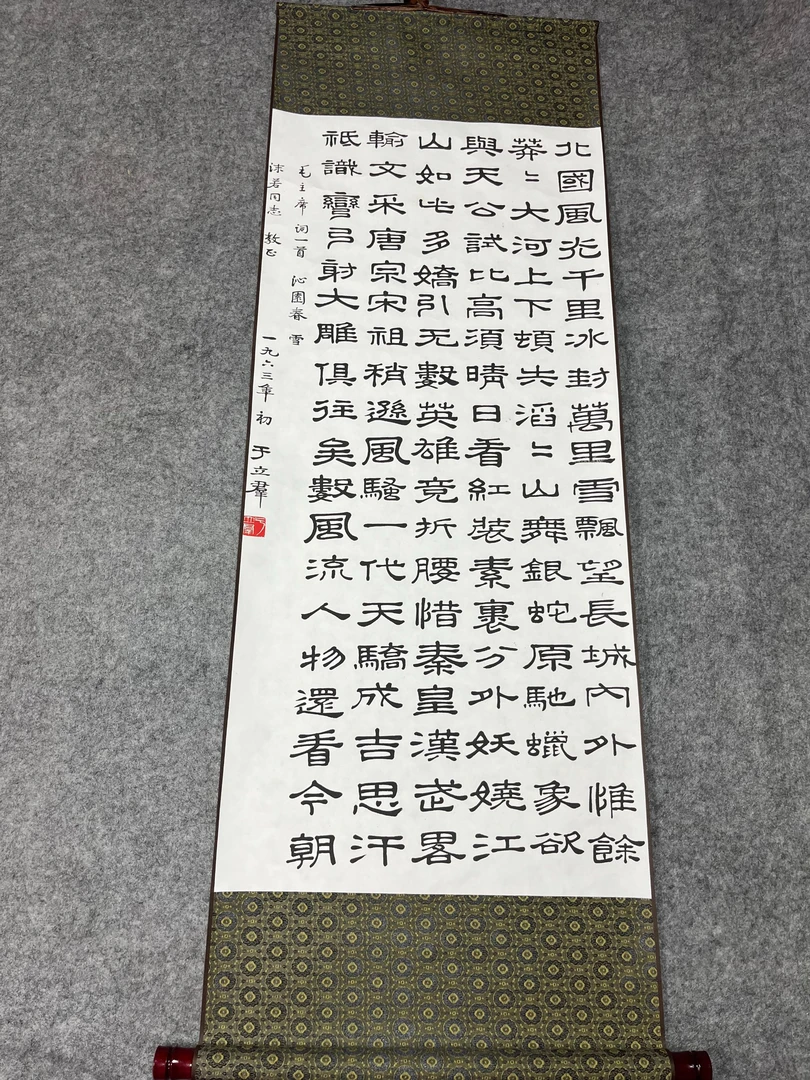 北國風光千里冰封萬里雪飄望長城內外惟餘
莽〻大河上下頓失滔〻山舞銀蛇原馳蠟象欲
與天公試比高須晴日看紅裝素裹分外妖嬈江
山如此多嬌引无數英雄竞折腰惜秦皇漢武畧
輸文采唐宗宋祖稍遜風騷一代天驕成吉思汗
祗識彎弓射大雕俱往矣數風流人物還看今朝
毛主席词一首 沁園春 雪
沫若同志 教正 一九六三年初 于立羣